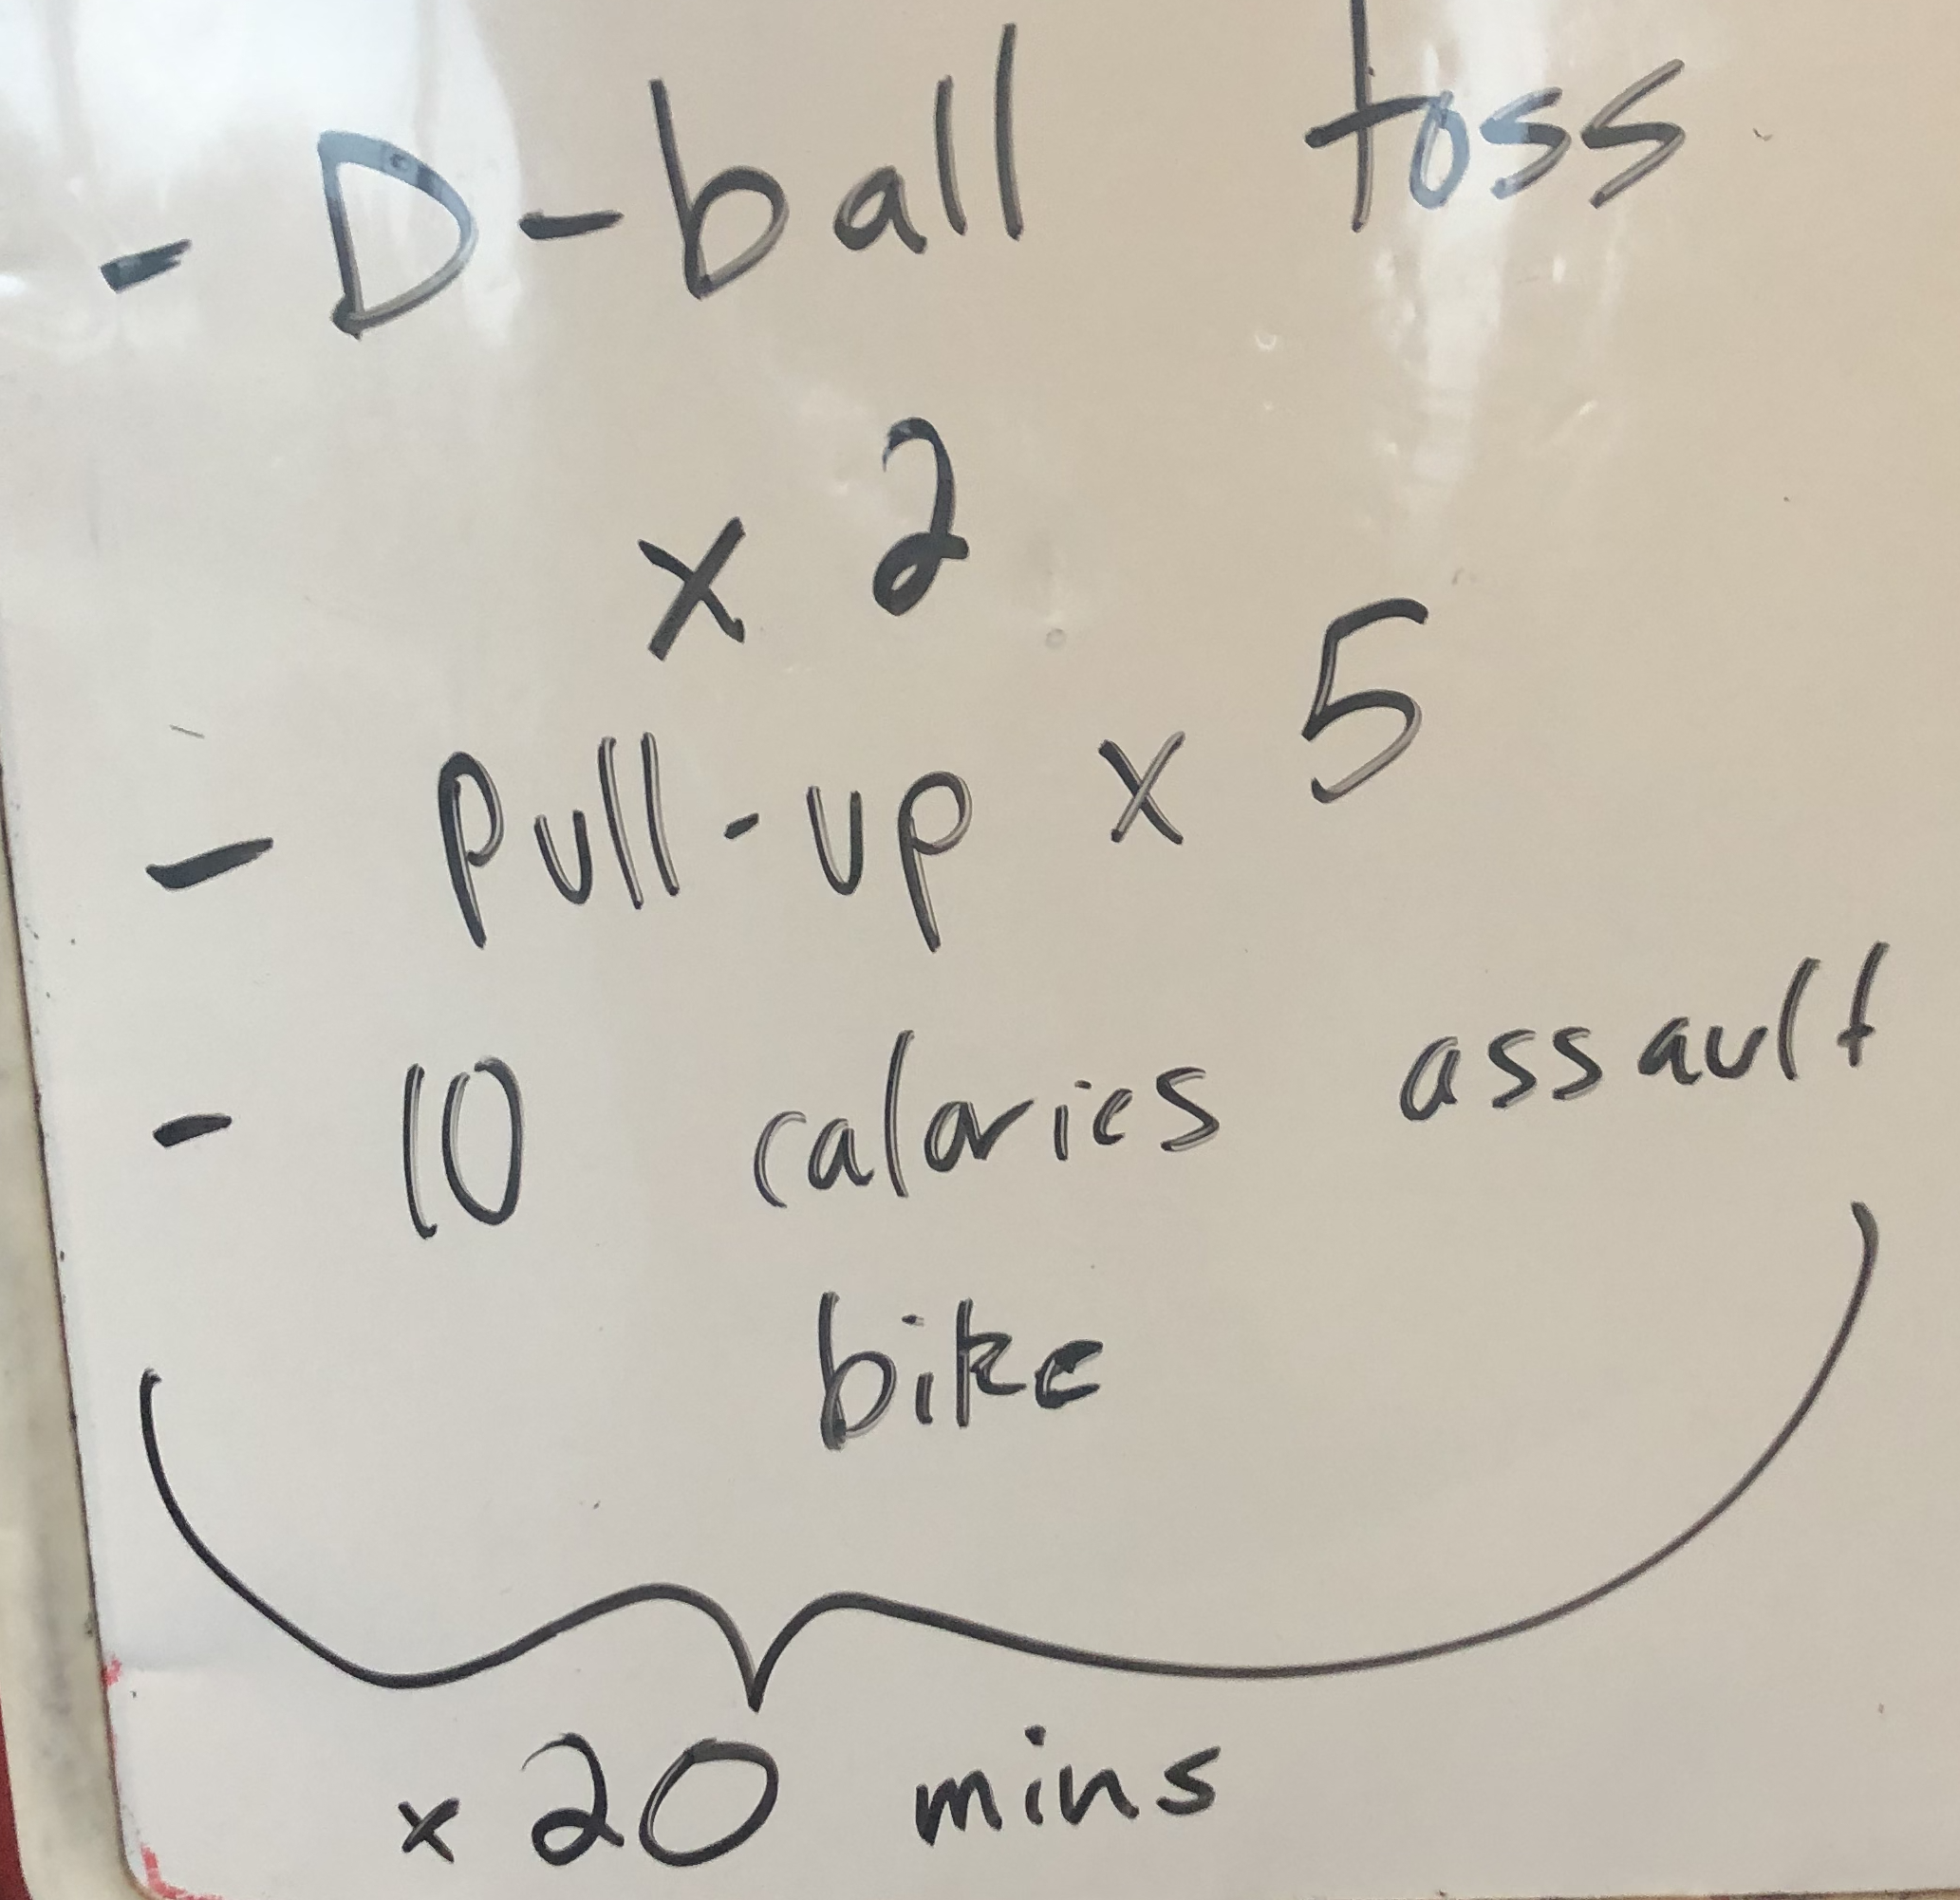 - D-ball toss
x 2
- Pull-up x 5
- 10 calories assault
bike
x 20 mins